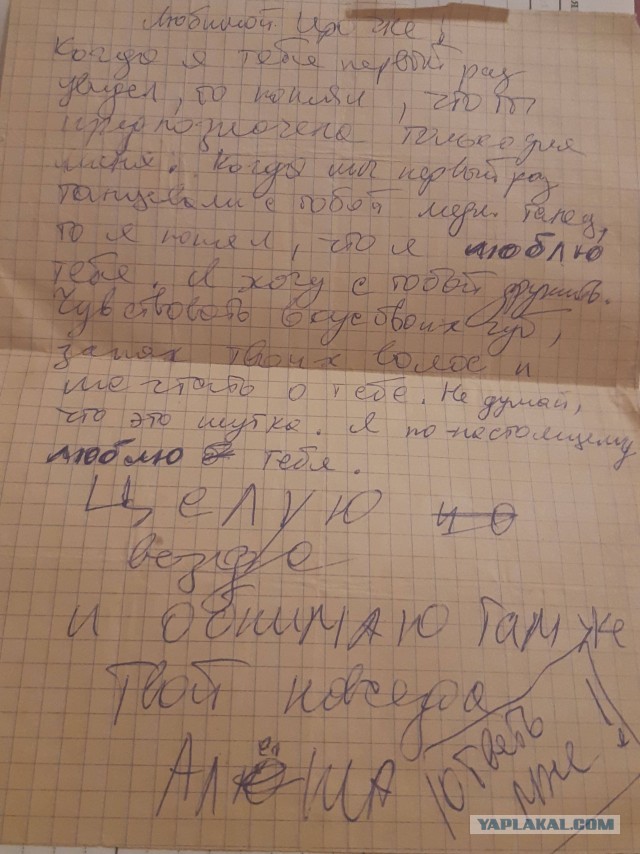 Любимой Ирочке!
Когда я тебя первый раз
увидел, то понял, что ты
предназначена только для
меня. Когда мы первый раз
танцевали с тобой медл. танец,
то я понял, что я люблю
тебя. Я хочу с тобой дружить.
Чувствовать вкус твоих губ,
запах твоих волос и
мечтать о тебе. Не думай,
что это шутка. Я по-настоящему
люблю тебя.
Целую но
везде
и обнимаю там же
Твой навсегда
Алёша
Ответь
мне!
YAPLAKAL.COM